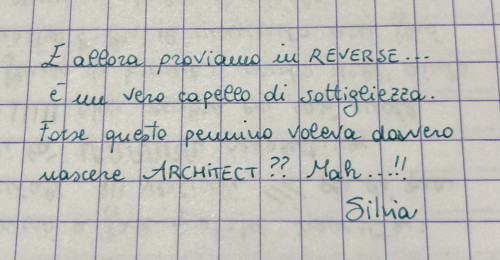 E allora proviamo in REVERSE...
è un vero capello di sottigliezza.
Forse questo pennino voleva davvero
nascere ARCHITECT?? Mah...!!
Silvia